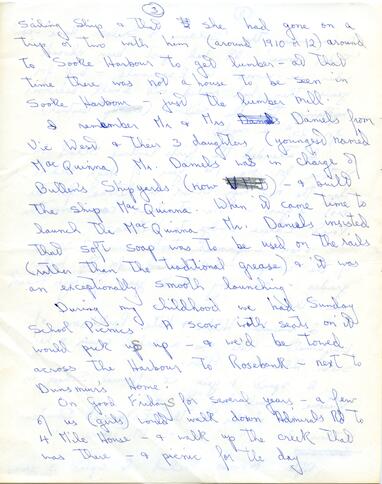 3
Sailing Ship & that she had gone on a
trip or two with him (around 1910 or 12) around
to Sooke Harbour to get lumber - at that
time there was not a house to be seen in
Sooke Harbour - just the lumber mill.
I remember Mr & Mrs Daniels from
Vic West & their 3 daughters (youngest named
MacQuinna) Mr. Daniels was in charge of
Bullen's Shipyards (now ) - & built
the ship MacQuinna. When it came time to
launch the MacQuinna - Mr. Daniels insisted
that soft soap was to be used on the rails
(rather than the traditional grease) & it was
an exceptionally smooth launching.
During my childhood we had Sunday
School Picnics. A scow with seats on it
would pick us up - & we'd be towed
across the Harbour to Rosebank - next to
Dunsmuir's Home.
On Good Fridays for several years - a few
of us (girls) would walk down Admirals Rd to
4 Mile House - & walk up the creek that
was there - & picnic for the day